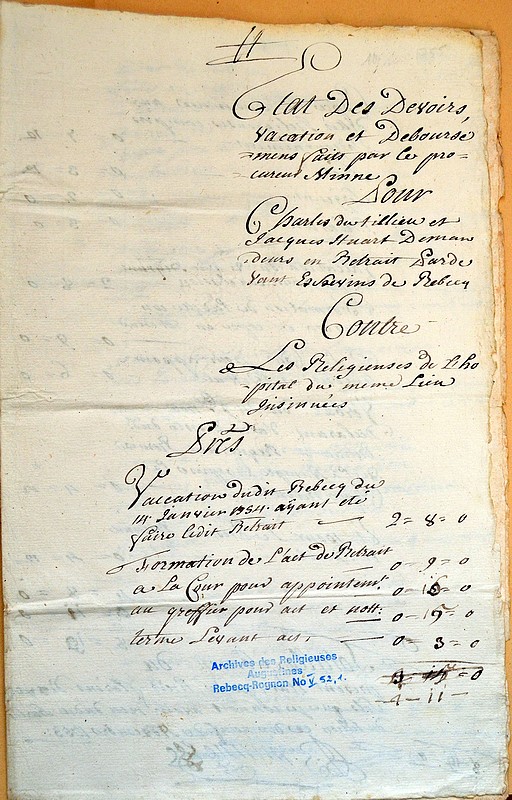 Etat Des Devoirs,
Vacation et Debourse
=mens faits par le pro=
cureur Minne
Pour
Charles du tillieu et
Jacques Stuart Deman
=deurs en Retrait Parde
vant Eschevins de Rebecq
Contre
Les Religieuses de L'ho
=pital du meme Lieu
Insinuées
Prês
Vaccation dudit Rebecq du
14. Janvier 1754. ayant eté
faire ledit Retrait 2 = 8 = 0
Formation de L'act de Retrait 0 = 9 = 0
a La Cour pour appointemt. 0 = 16 = 0
au greffier pour act et nott: 0 = 15 = 0
terme Levant act. 0 = 3 = 0
= 0
4 - 11 -
Archives des Religieuses
Augustines
Rebecq-Rognon No V 52,1.